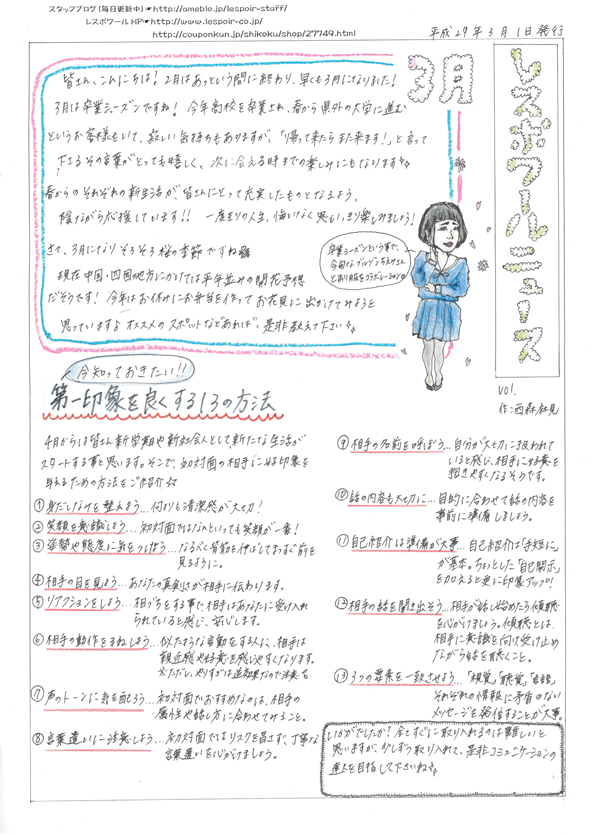 スタッフブログ(毎日更新中)☛http://ameblo.jp/lespoir-staff/
レスポワールHP☛http://www.lespoir-co.jp/
http://couponkun.jp/shikoku/shop/27749.html
平成29年3月1日発行
レスポワールニュース
3月
皆さん、こんにちは！2月はあっという間に終わり、早くも3月になりました！
3月は卒業シーズンですね！今年高校を卒業され、春から県外の大学に進む
というお客様もいて、寂しい気持ちもありますが、「帰って来たらまた来ます！」と言って
下さるその言葉がとっても嬉しく、次に会える時までの楽しみにもなります
春からのそれぞれの新生活が、皆さんにとって充実したものとなるよう、
陰ながら応援しています!! 一度きりの人生、悔いなく思いっきり楽しみましょう！
さて、3月になりそろそろ桜の季節ですね
現在中国・四国地方にかけては平年並みの開花予想
だそうです！今年はお休みにお弁当を作ってお花見に出かけてみようと
思っています♪オススメのスポットなどあれば、是非教えて下さい
卒業シーズンという事で、
今旬なブルゾンちえみさん
vol.
作:西森
今知っておきたい!!
第一印象を良くする13の方法
4月からは皆さん新学期や新社会人として新たな生活が
スタートする事と思います。そこで、初対面の相手に好印象を
与えるための方法をご紹介☆
①身だしなみを整えよう…何よりも清潔感が大切！
②笑顔を意識しよう…初対面ではなんといっても笑顔が一番！
③姿勢や態度に気をつけよう…なるべく背筋を伸ばしてまっすぐ前を
見るように。
④相手の目を見よう…あなたの真剣さが相手に伝わります。
⑤リアクションをしよう…相づちをする事で、相手はあなたに受け入れ
られていると感じ、安心します。
⑥相手の動作をまねしよう…似たような言動をする人に、相手は
親近感や好意を感じやすくなります。
※ただし、やりすぎは逆効果なので注意
⑦声のトーンに気を配ろう…初対面でおすすめなのは、相手の
属性や話し方に合わせてみること。
⑧言葉遣いに注意しよう…初対面ではリスクを冒さず、丁寧な
言葉遣いを心がけましょう。
⑨相手の名前を呼ぼう…自分が大切に扱われて
いると感じ、相手に好意を
抱きやすくなるそうです。
⑩話の内容も大切に…目的に合わせて話の内容を
事前に準備しましょう。
⑪自己紹介は準備が大事…自己紹介は「手短に」
が基本。ちょっとした「自己開示」
を加えると更に印象アップ!!
⑫相手の話を聞き出そう…相手が話し始めたら傾聴
を心がけましょう。傾聴とは、
相手に意識を向け受け止め
ながら話を聴くこと。
⑬3つの要素を一致させよう…「視覚」「聴覚」「言語」
それぞれの情報に矛盾のない
メッセージを発信することが大事。
いかがでしたか？全てすぐに取り入れるのは難しいと
思いますが、少しずつ取り入れて、是非コミュニケーションの
達人を目指して下さいね